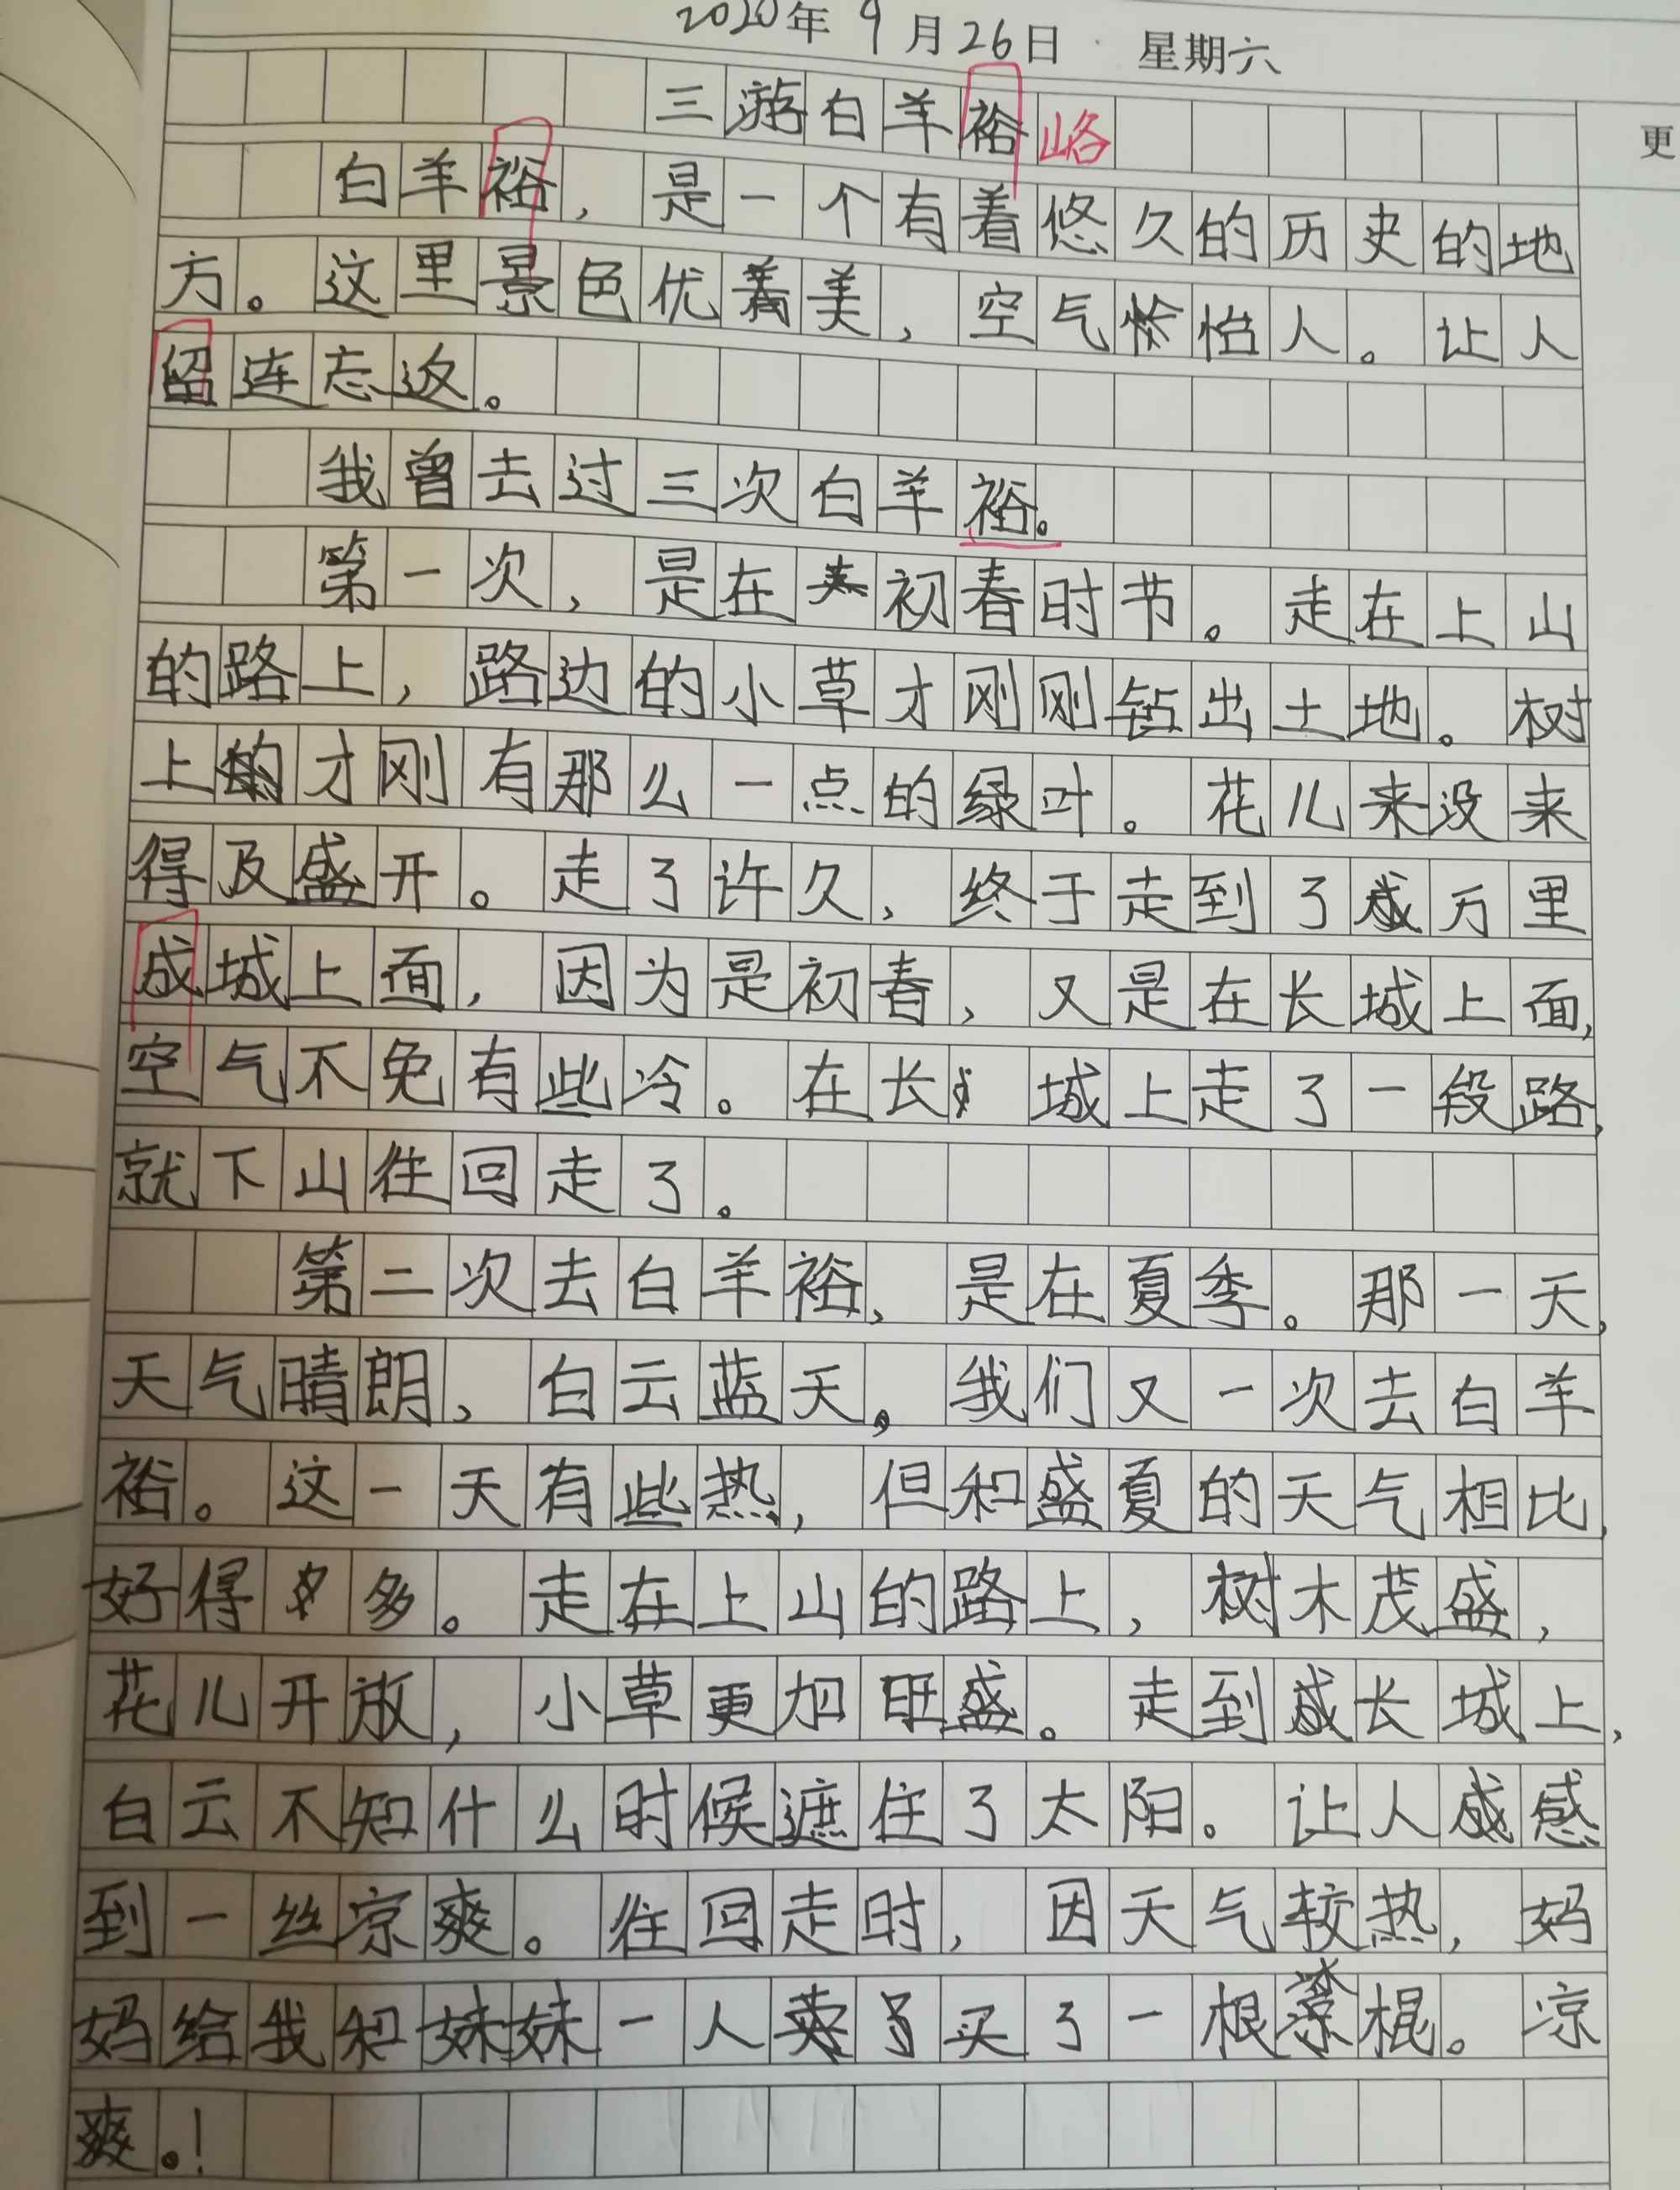 2020年9月26日 星期六
三游白羊裕峪
更
白羊裕，是一个有着悠久的历史的地
方。这里景色优美，空气怡人。让人
留连忘返。
我曾去过三次白羊裕。
第一次，是在初春时节。走在上山
的路上，路边的小草才刚刚钻出土地。树
上才刚有那么一点的绿叶。花儿来没来
得及盛开。走了许久，终于走到了万里
成城上面，因为是初春，又是在长城上面，
空气不免有些冷。在长城上走了一段路，
就下山往回走了。
第二次去白羊裕，是在夏季。那一天，
天气晴朗，白云蓝天。我们又一次去白羊
裕。这一天有些热，但和盛夏的天气相比，
好得多。走在上山的路上，树木茂盛，
花儿开放，小草更加旺盛。走到长城上，
白云不知什么时候遮住了太阳。让人感
到一丝凉爽。往回走时，因天气较热，妈
妈给我和妹妹一人买了一根棍。凉
爽。！